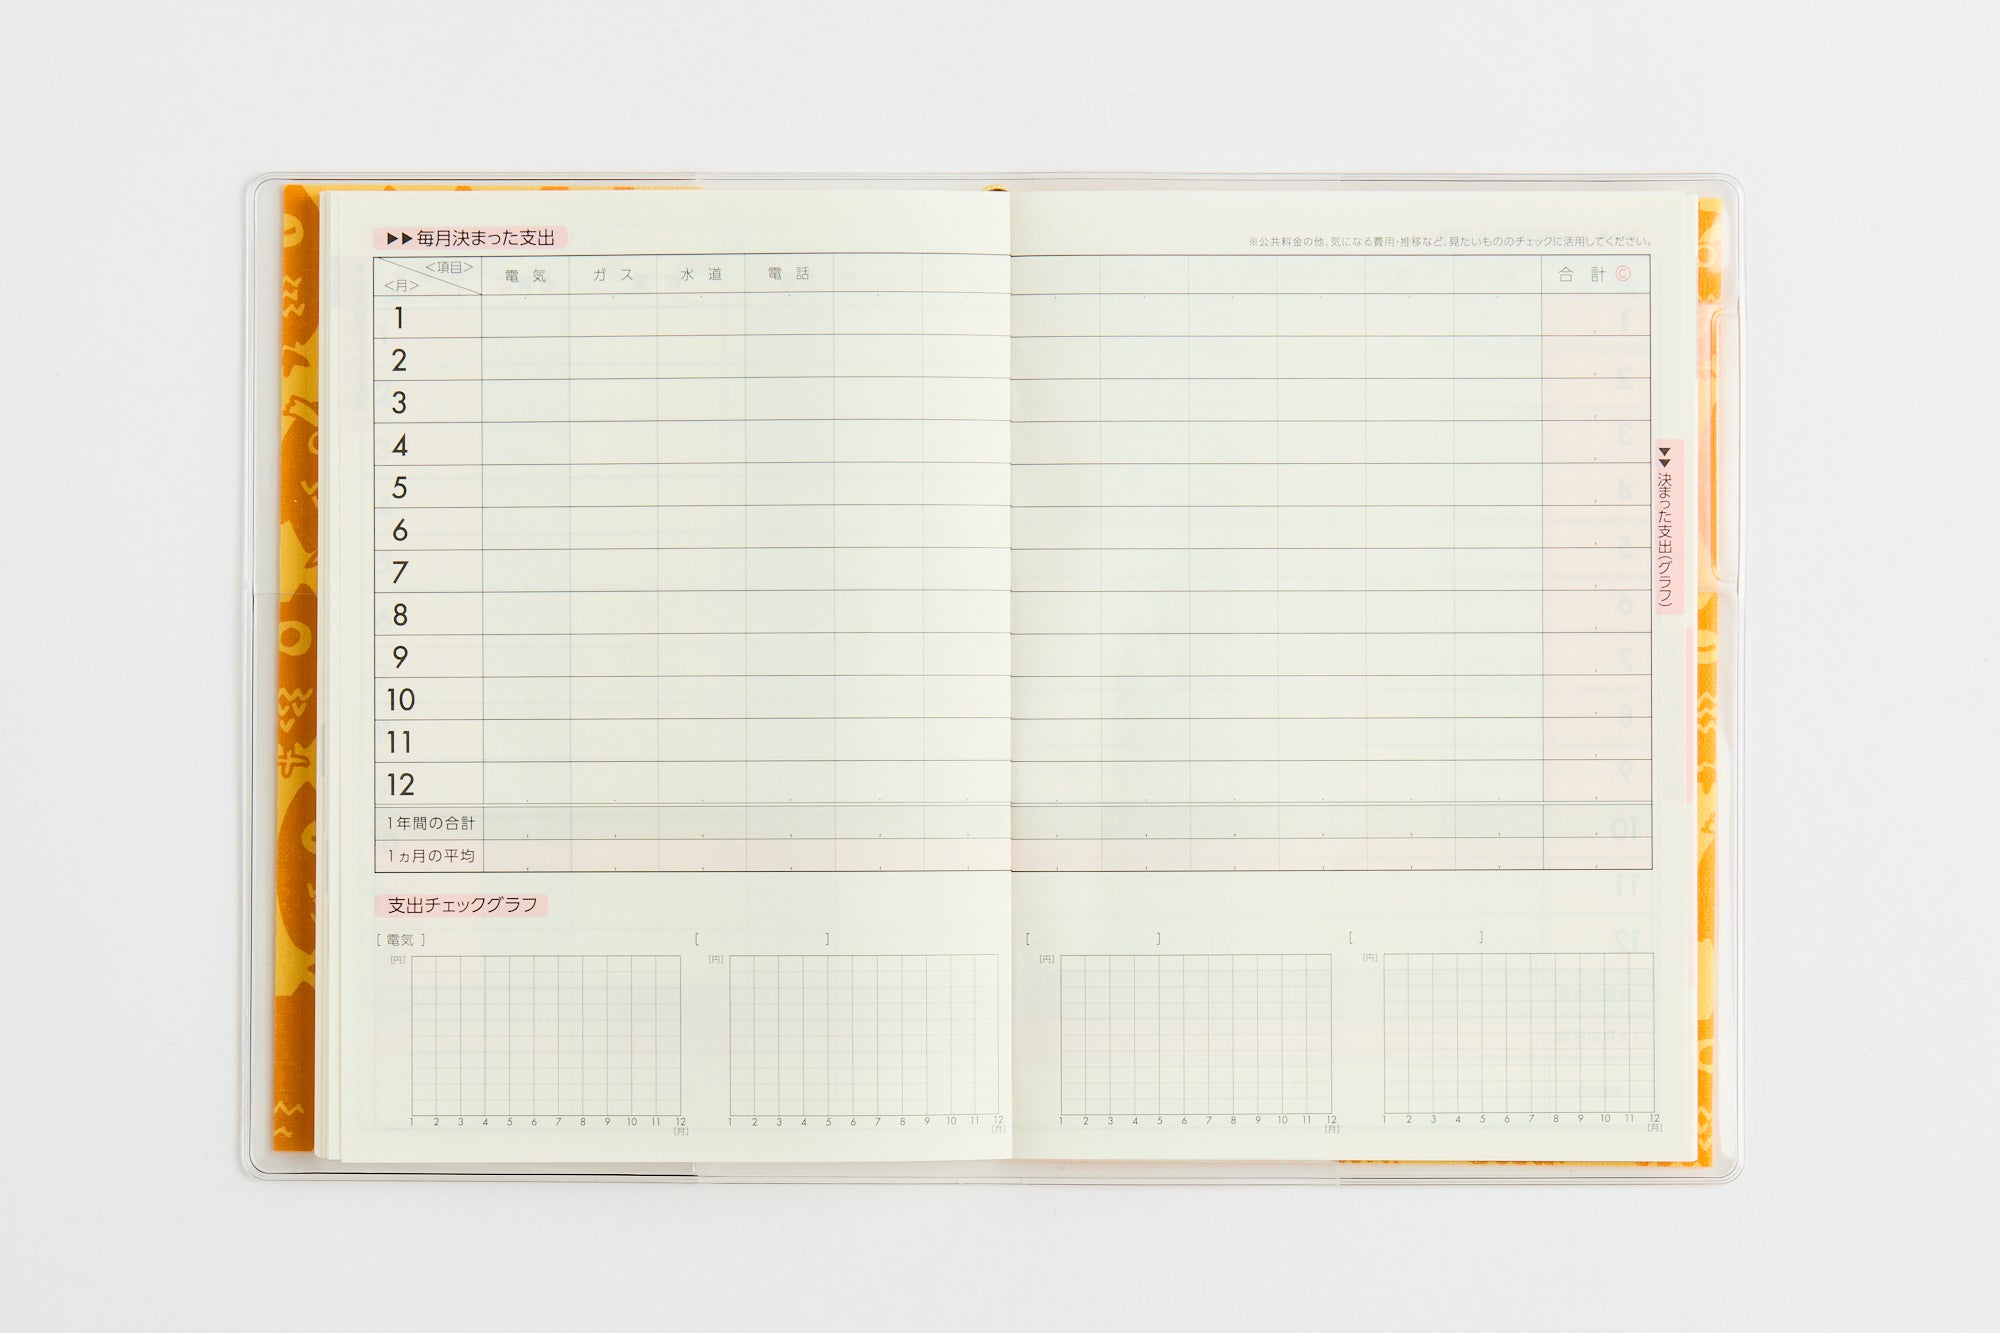 ▶▶毎月決まった支出
※公共料金の他、気になる費用・推移など、見たいもののチェックに活用してください。
<項目>
<月>
電気 ガス 水道 電話 合計 Ⓒ
1
2
3
4
5
6
7
8
9
10
11
12
1年間の合計
1ヵ月の平均
▶▶決まった支出(グラフ)
支出チェックグラフ
[ 電気 ] [ ] [ ] [ ]
[円] [円] [円] [円]
1 2 3 4 5 6 7 8 9 10 11 12 1 2 3 4 5 6 7 8 9 10 11 12 1 2 3 4 5 6 7 8 9 10 11 12 1 2 3 4 5 6 7 8 9 10 11 12
[月] [月] [月] [月]